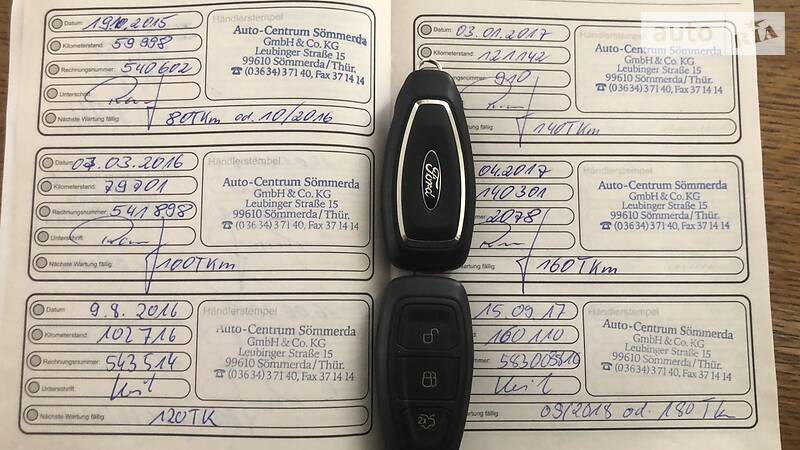 Datum: 19.10.2015
Kilometerstand: 59998
Rechnungsnummer: 540602
Unterschrift:
Nächste Wartung fällig: 80TKm od. 10/2016
Händlerstempel
Auto-Centrum Sömmerda
GmbH & Co. KG
Leubinger Straße 15
99610 Sömmerda/Thür.
☎ (03634) 371 40, Fax 37 14 14
Datum: 07.03.2016
Kilometerstand: 79701
Rechnungsnummer: 541898
Unterschrift:
Nächste Wartung fällig: 100TKm
Händlerstempel
Auto-Centrum Sömmerda
GmbH & Co. KG
Leubinger Straße 15
99610 Sömmerda/Thür.
☎ (03634) 371 40, Fax 37 14 14
Datum: 9.8.2016
Kilometerstand: 102716
Rechnungsnummer: 543514
Unterschrift:
Nächste Wartung fällig: 120TK
Händlerstempel
Auto-Centrum Sömmerda
GmbH & Co. KG
Leubinger Straße 15
99610 Sömmerda/Thür.
☎ (03634) 371 40, Fax 37 14 14
Datum: 03.01.2017
Kilometerstand: 121142
910
140TKm
Händlerstempel
Auto-Centrum Sömmerda
GmbH & Co. KG
Leubinger Straße 15
99610 Sömmerda/Thür.
☎ (03634) 371 40, Fax 37 14 14
04.2017
140301
2078
160TKm
Händlerstempel
Auto-Centrum Sömmerda
GmbH & Co. KG
Leubinger Straße 15
99610 Sömmerda/Thür.
☎ (03634) 371 40, Fax 37 14 14
15.09.17
160110
09/2018 od. 180TKm
Händlerstempel
Auto-Centrum Sömmerda
GmbH & Co. KG
Leubinger Straße 15
99610 Sömmerda/Thür.
☎ (03634) 371 40, Fax 37 14 14
Ford
auto RIA